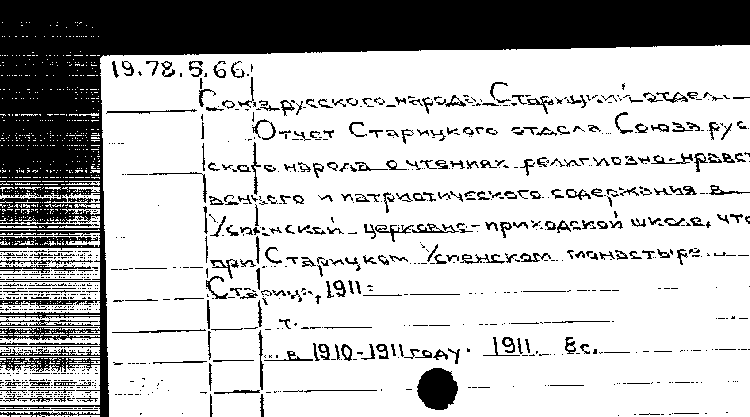 19.78.5.66.
Союз русского народа. Старицкий отдел.
Отчет Старицкого отдела Союза рус-
ского народа о чтениях религиозно-нравст-
венного и патриотического содержания в
Успенской церковно-приходской школе, что
при Старицком Успенском монастыре...
Старица, 1911-
т.
... в 1910-1911 году. 1911. 8с.